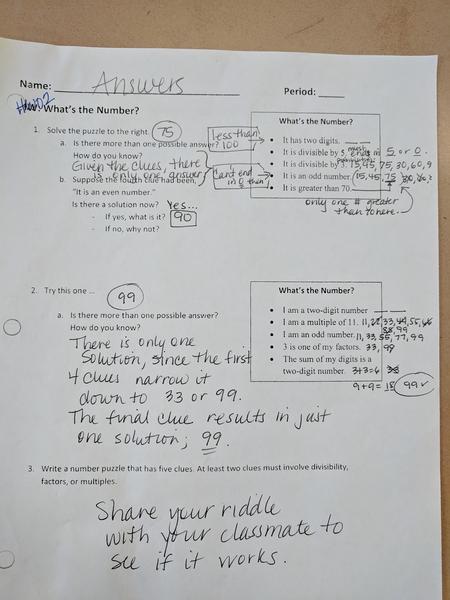 Name: Answers Period: ____
What's the Number?
1. Solve the puzzle to the right. 75
a. Is there more than one possible answer?
How do you know?
Given the clues, there
is only one answer
b. Suppose the fourth clue had been,
"It is an even number."
Is there a solution now? Yes...
- If yes, what is it? 90
- If no, why not?
less than
100
Can't end
in 0 then
What's the Number?
• It has two digits. __ __
• It is divisible by 5. ends in 5 or 0.
• It is divisible by 3. 15, 45, 75, 30, 60, 9
• It is an odd number. (15, 45, 75
• It is greater than 70
only one # greater
than to here.
2. Try this one ... 99
a. Is there more than one possible answer?
How do you know?
There is only one
solution, since the first
4 clues narrow it
down to 33 or 99.
The final clue results in just
one solution; 99.
What's the Number?
• I am a two-digit number __ __
• I am a multiple of 11. 11, 22, 33, 44, 55, 66
88, 99
• I am an odd number. 11, 33, 55, 77, 99
• 3 is one of my factors. 33, 99
• The sum of my digits is a
two-digit number. 3+3=6 33
9+9=18 99 ✓
3. Write a number puzzle that has five clues. At least two clues must involve divisibility,
factors, or multiples.
Share your riddle
with your classmate to
see if it works.